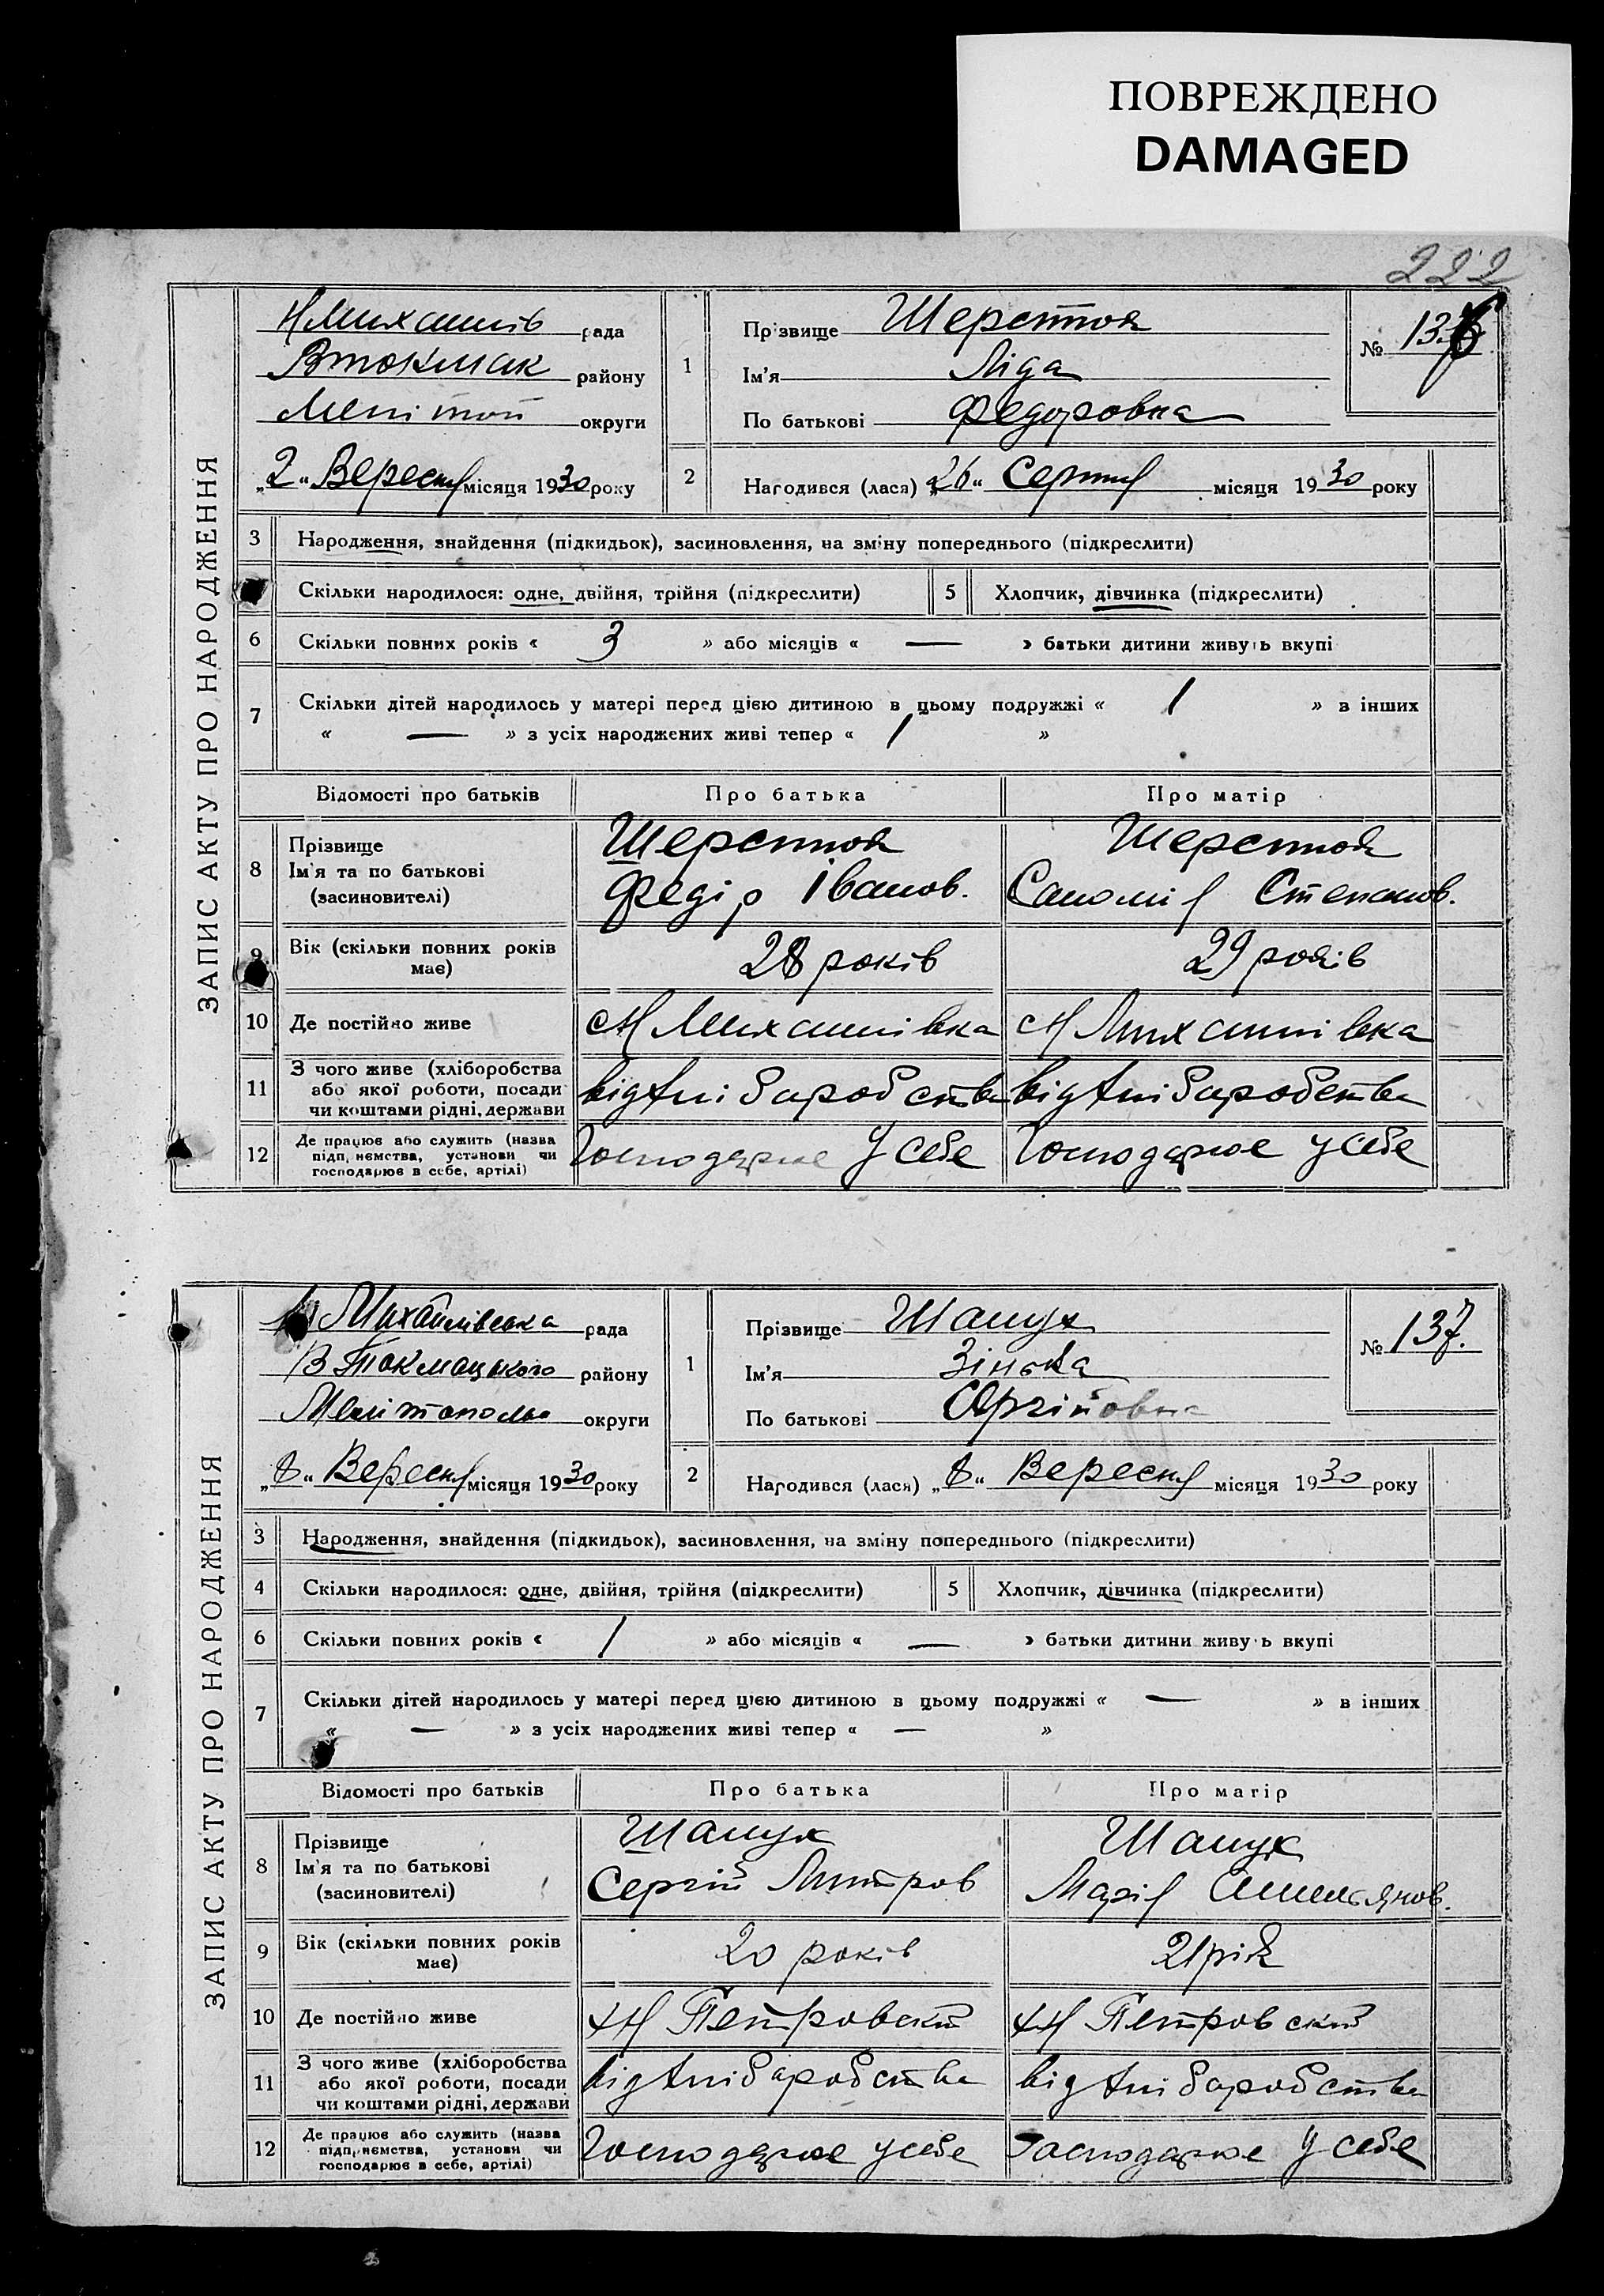 ПОВРЕЖДЕНО
DAMAGED
222
ЗАПИС АКТУ ПРО НАРОДЖЕННЯ
Н Михайлів рада
Втокмак району
Мелітоп округи
„2“ Вересня місяця 1930 року
1 Прізвище Шерстюк
Ім'я Ліда
По батькові Федоровна
№ 136
2 Народився (лася) „26“ Серпня місяця 1930 року
3 Народження, знайдення (підкидьок), засиновлення, на зміну попереднього (підкреслити)
Скільки народилося: одне, двійня, трійня (підкреслити) 5 Хлопчик, дівчинка (підкреслити)
6 Скільки повних років « 3 » або місяців « — » батьки дитини живуть вкупі
7 Скільки дітей народилось у матері перед цією дитиною в цьому подружжі « 1 » в інших
« — » з усіх народжених живі тепер « 1 »
Відомості про батьків Про батька Про матір
8 Прізвище
Ім'я та по батькові
(засиновителі)
Шерстюк
Федір Іванов.
Шерстюк
Степанов.
9 Вік (скільки повних років
має)
28 років 29 років
10 Де постійно живе сН Михайлівка сН Михайлівка
11 З чого живе (хліборобства
або якої роботи, посади
чи коштами рідні, держави
від хліборобства від хліборобства
12 Де працює або служить (назва
підприємства, установи чи
господарює в себе, артілі)
Господарює у себе Господарює у себе
ЗАПИС АКТУ ПРО НАРОДЖЕННЯ
Н Михайлівська рада
В Токмацького району
округи
„8“ Вересня місяця 1930 року
1 Прізвище Шамук
Ім'я Зінька
По батькові
№ 137.
2 Народився (лася) „8“ Вересня місяця 1930 року
3 Народження, знайдення (підкидьок), засиновлення, на зміну попереднього (підкреслити)
4 Скільки народилося: одне, двійня, трійня (підкреслити) 5 Хлопчик, дівчинка (підкреслити)
6 Скільки повних років « 1 » або місяців « — » батьки дитини живуть вкупі
7 Скільки дітей народилось у матері перед цією дитиною в цьому подружжі « — » в інших
« — » з усіх народжених живі тепер « — »
Відомості про батьків Про батька Про матір
8 Прізвище
Ім'я та по батькові
(засиновителі)
Шамук
Сергій Дмитров
Шамук
Марія Омельянов.
9 Вік (скільки повних років
має)
20 років 21 рік
10 Де постійно живе хН Петровский хН Петровский
11 З чого живе (хліборобства
або якої роботи, посади
чи коштами рідні, держави
від хліборобства від хліборобства
12 Де працює або служить (назва
підприємства, установи чи
господарює в себе, артілі)
Господарює у себе Господарює у себе